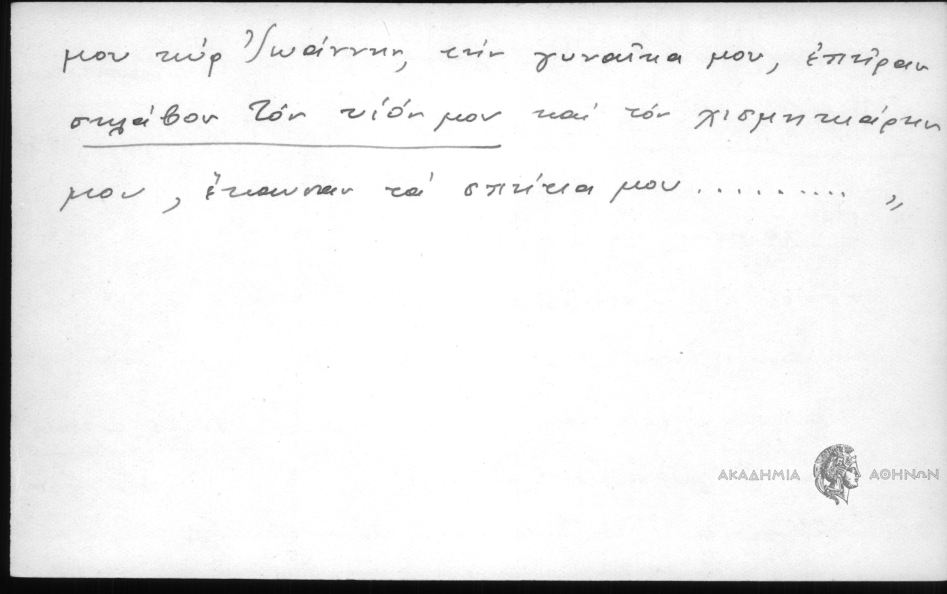 μου τὸν Ἰωάννην, τὴν γυναῖκα μου, ἐπῆραν
σκλάβον τὸν υἱόν μου καὶ τὸν χισμηκιάρην
μου, ἔκαυσαν τὰ σπίτια μου ......... „
ΑΚΑΔΗΜΙΑ ΑΘΗΝΩΝ